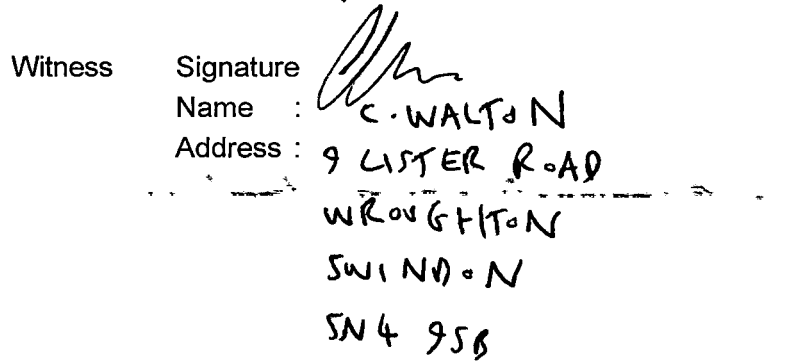 Witness Signature
Name : C. WALTON
Address : 9 LISTER ROAD
WROUGHTON
SWINDON
SN4 9SB